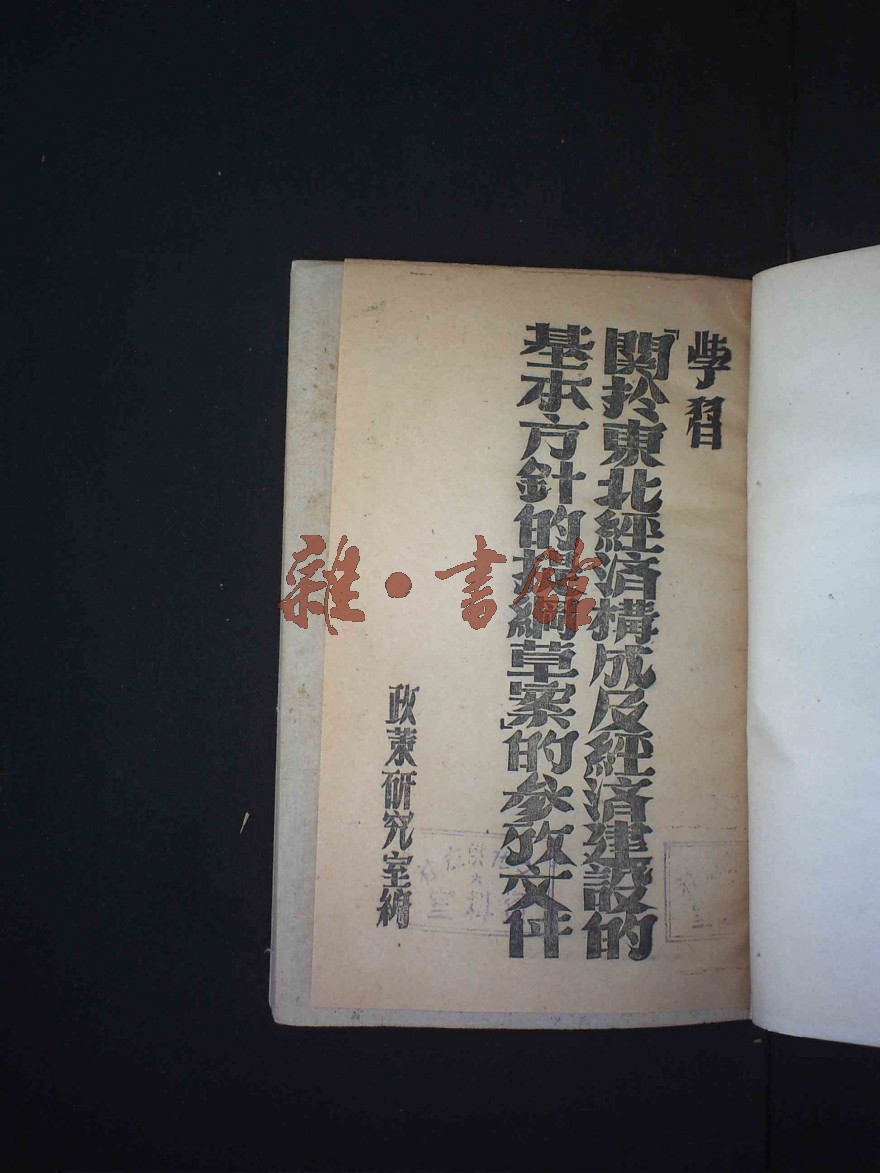 学習
「関於東北經済構成及經済建設的
基本方針的提綱草案」的參攷文件
政策研究室編
雜·書館